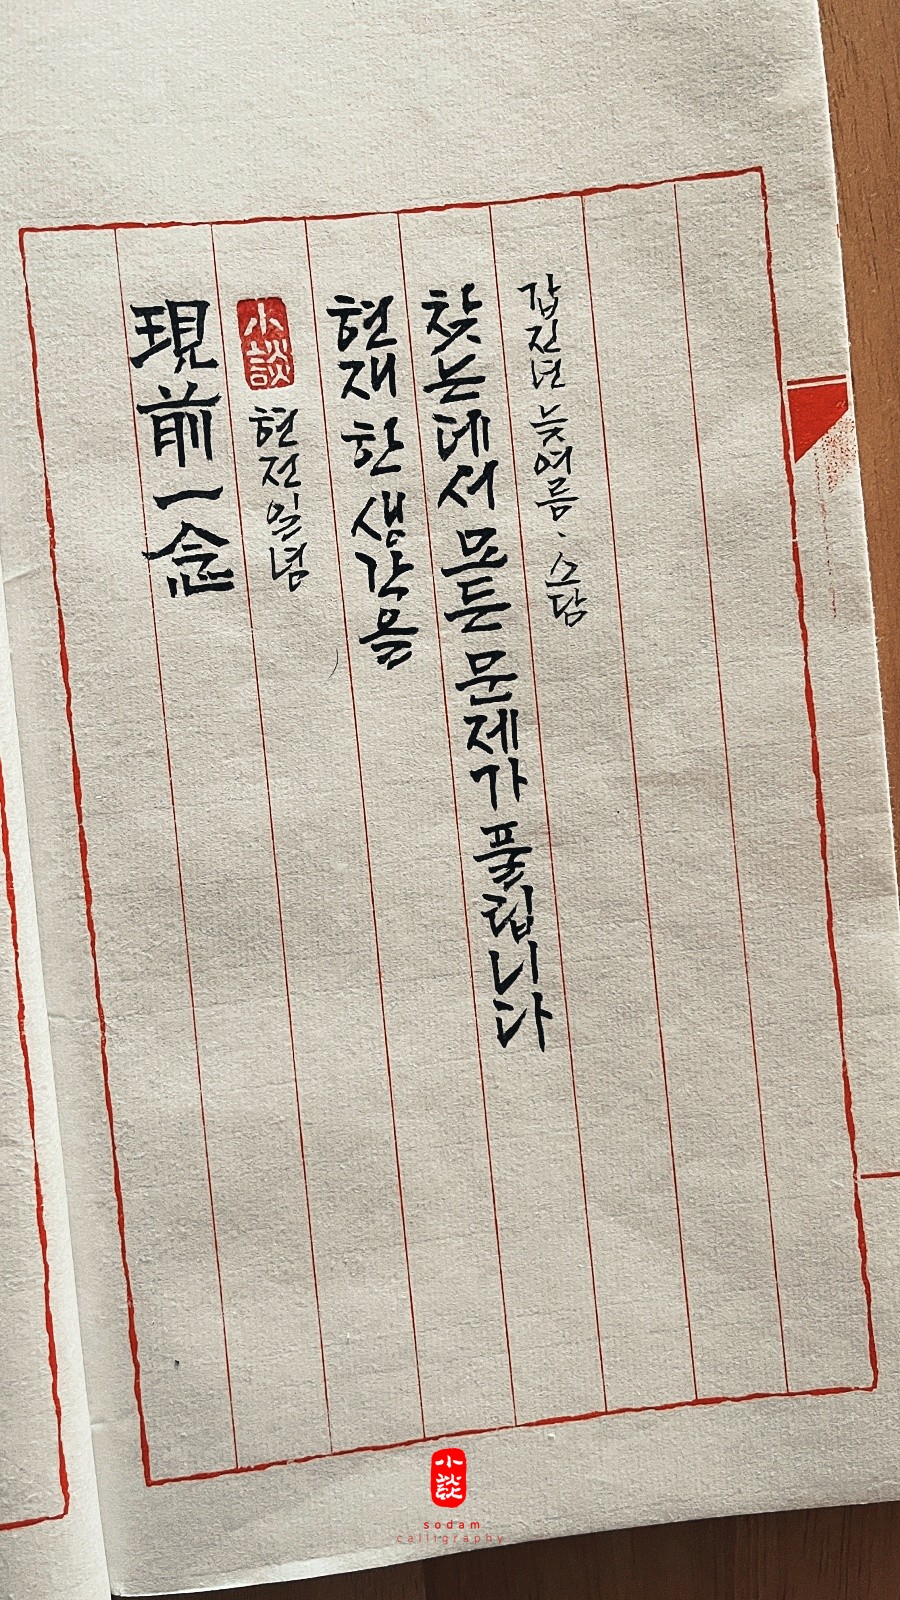 現前一念
小談
현전일념
현재 한 생각을
찾는 데서 모든 문제가 풀립니다
갑진년 늦여름、소담
小談
sodam
calligraphy